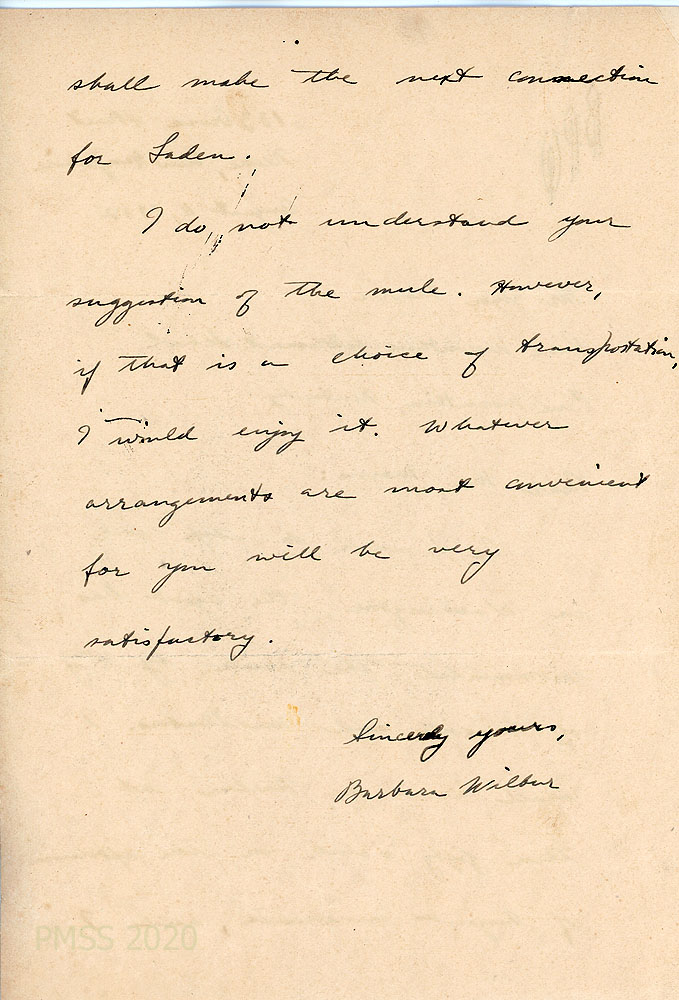 shall make the next connection
for Laden.
I do not understand your
suggestion of the mule. However,
if that is a choice of transportation,
I would enjoy it. Whatever
arrangements are most convenient
for you will be very
satisfactory.
Sincerely yours,
Barbara Wilbur
PMSS 2020